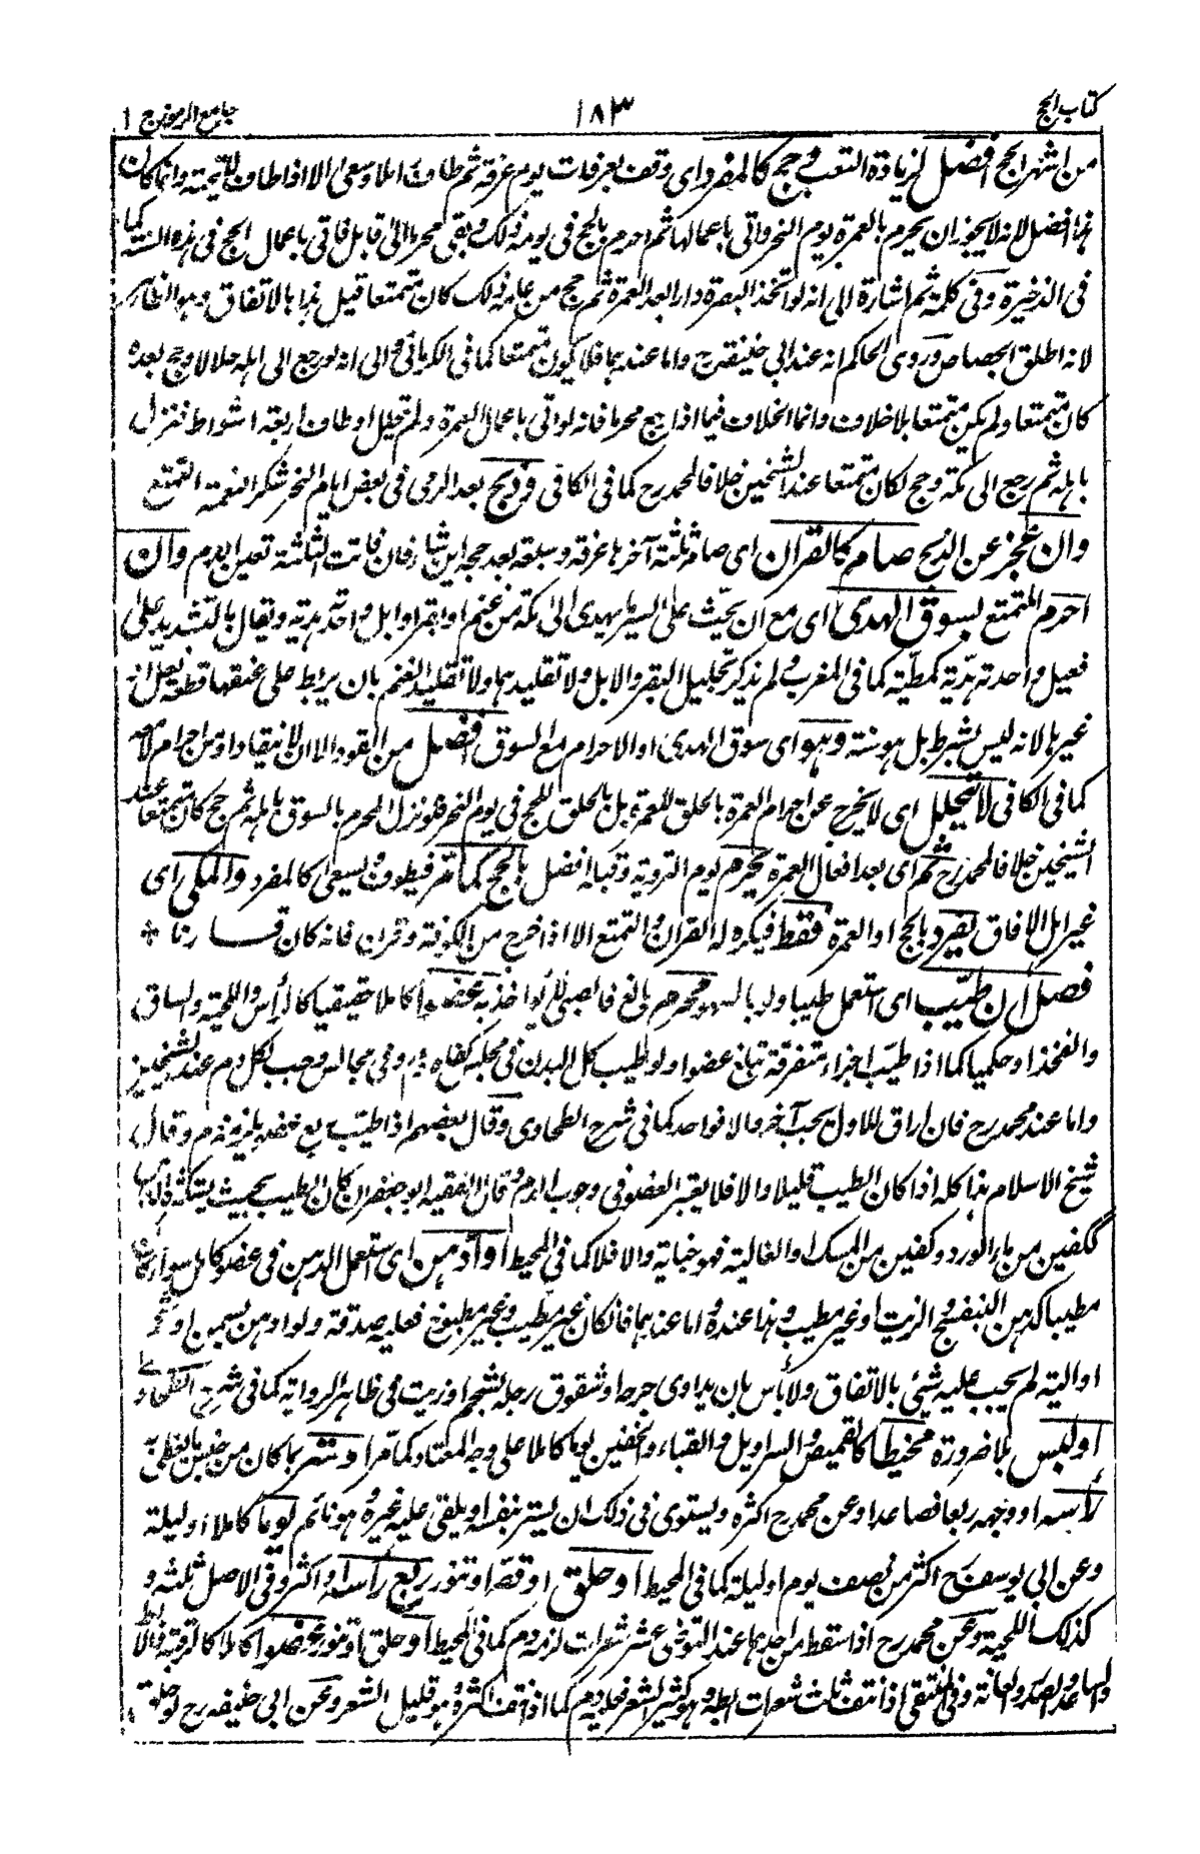 كتاب الحج ١٨٣ جامع الرموز ج ١
من اشهر الحج افضل لزيادة التعب وحج كالمفرد اى وقف بعرفات يوم عرفة ثم طاف املا وسعى الا اذا طاف للتحية وانما كان
هذا افضل لانه لا يجوز ان يحرم بالعمرة يوم النحر واتى باعمالها ثم احرم بالحج فى يومه ذلك وبقى محرما الى قابل فاتى باعمال الحج فى هذه السنة كما
فى الذخيرة وفى كلمة ثم اشارة الى انه لو اتخذ البصرة دارا بعد العمرة ثم حج من عامه ذلك كان متمتعا قيل هذا بالاتفاق وهو الظاهر
لانه اطلق الجصاص وروى الحاكم انه عند ابى حنيفة رح واما عندهما فلا يكون متمتعا كما فى الكرمانى والى انه لو رجع الى اهله حلالا وحج بعده
كان متمتعا ولم يكن متمتعا بلا خلاف وانما الخلاف فيما اذا رجع محرما فانه لو اتى باعمال العمرة ولم يحلل او طاف اربعة اشواط فنزل
باهله ثم رجع الى مكة وحج لكان متمتعا عند الشيخين خلافا لمحمد رح كما فى الكافى وذبح بعد الرمى فى بعض ايام النحر شكرا لنعمة التمتع
وان عجز عن الذبح صام كالقران اى صام ثلثة آخرها عرفة وسبعة بعد حجه اين شاء فان فاتت الثلثة تعين الدم وان
احرم المتمتع بسوق الهدى اى مع ان يحث على السير ما يهدى الى مكة من غنم او بقر او ابل واحدته هدية ويقال بالتشديد على
فعيل واحدته هديّة كمطيّة كما فى المغرب ولم يذكر تجليل البقر والابل ولا تقليدهما ولا تقليد الغنم بان يربط على عنقها قطعة نعل او
غيرها لانه ليس بشرط بل هو سنة وهو اى سوق الهدى او الاحرام مع السوق افضل من القود الا ان لا ينقاد او من احرام لا سوق معه
كما فى الكافى لا يتحلل اى لا يخرج عن احرام العمرة بالحلق للعمرة بل بالحلق للحج فى يوم النحر فلو نزل المحرم بالسوق باهله ثم حج كان متمتعا عند
الشيخين خلافا لمحمد رح ثم اى بعد افعال العمرة يحرم يوم التروية وقبله افضل بالحج كما مر فيطوف ويسعى كالمفرد والمكى اى
غير اهل الافاق يفرد بالحج او العمرة فقط فيكره له القران والتمتع الا اذا خرج من الكوفة وقرن فانه كان قارنا
فصل ان طيّب اى استعمل طيبا ولو بالسهو محرم بالغ فالصبى لم يؤاخذ به عضوا كاملا حقيقيا كالرأس واللحية والساق
والفخذ او حكميا كما اذا طيّب اجزاء متفرقة تبلغ عضوا ولو طيب كل البدن فى مجلس كفاه دم وفى مجالس وجب لكل دم عند الشيخين
واما عند محمد رح فان اراق للاول يجب آخر والا فواحد كما فى شرح الطحاوى وقال بعضهم اذا طيّب ربع عضو يلزمه دم وقال
شيخ الاسلام هذا كله اذا كان الطيب قليلا والا فلا يعتبر العضو فى وجوب الدم وقال الفقيه ابو جعفر ان كان الطيب بحيث يستكثره الناس
ككفين من ماء الورد وكفين من المسك او الغالية فهو جناية والا فلا كما فى المحيط او ادهن اى استعمل الدهن فى عضو كامل سواء كان
مطيبا كدهن البنفسج والزيت او غير مطيب وهذا عنده واما عندهما فان كان غير مطيب وغير مطبوخ فعليه صدقة ولو ادهن بسمن او شحم
او الية لم يجب عليه شئ بالاتفاق ولا بأس بان يداوى جرحه او شقوق رجله بشحم او زيت فى ظاهر الرواية كما فى شرح الطحاوى
او لبس بلا ضرورة مخيطا كالقميص والسراويل والقباء والخفين يوما كاملا على وجه المعتاد كما مر او ستر بما كان من جنس ما يغطى به
رأسه او وجهه ربعا فصاعدا وعن محمد رح اكثره ويستوى فى ذلك ان يستر بنفسه او يلقى عليه غيره وهو نائم يوما كاملا او ليلة
وعن ابى يوسف رح اكثر من نصف يوم او ليلة كما فى المحيط او حلق او قص او تنور ربع رأسه او اكثر وفى الاصل ثلثه و
كذلك اللحية وعن محمد رح اذا سقط من احدهما عند التوضى عشر شعرات لزمه دم كما فى المحيط او حلق او تنور عضوا كاملا كالرقبة والابط
والساعد والصدر والعانة وفى المنتقى اذا نتف ثلث شعرات ابطه وهو كثير الشعر فعليه دم كما اذا نتف اكثره وهو قليل الشعر وعن ابى حنيفة رح لو حلق